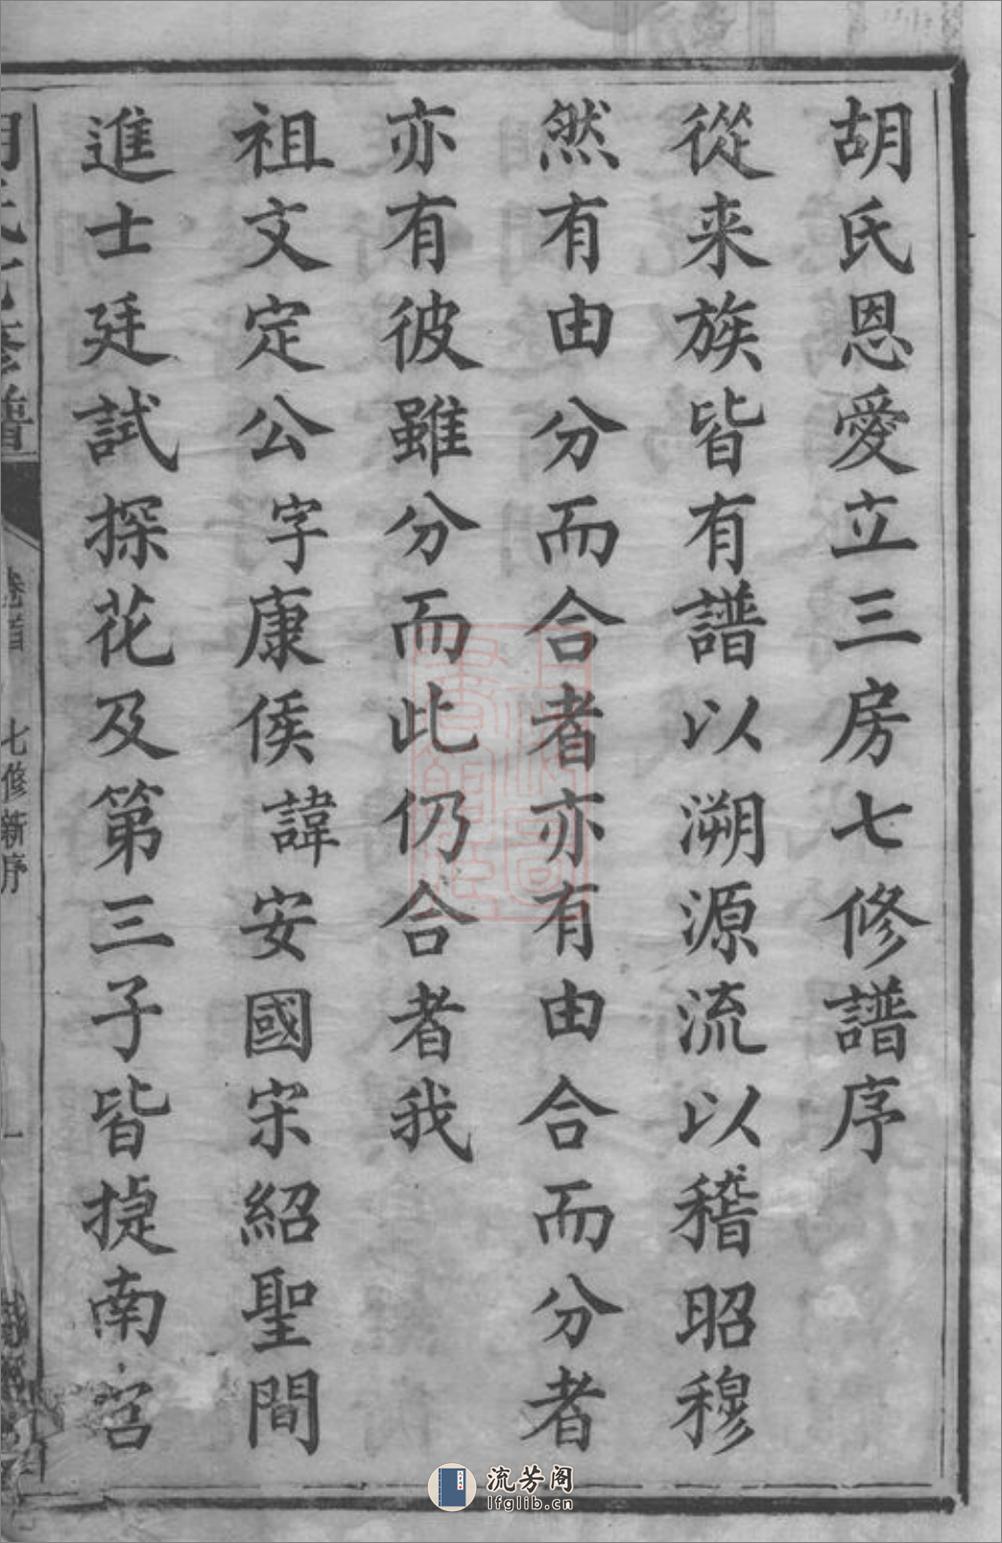 胡氏恩愛立三房七修譜序
從来族皆有譜以溯源流以稽昭穆
然有由分而合者亦有由合而分者
亦有彼雖分而此仍合者我
祖文定公字康侯諱安國宋紹聖間
進士廷試探花及第三子皆捷南宮
卷首 七修新序 一
流芳阁
lfglib.cn